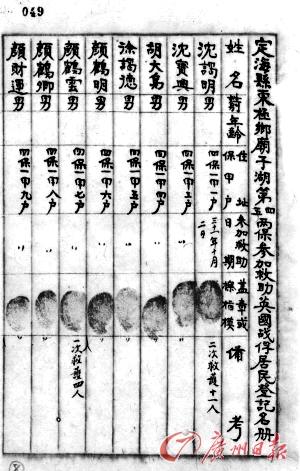 049
定海縣東極鄉廟子湖第四五兩保參加救助英國战俘居民登記名册
姓名 年齡 住址 保甲户 參加救助日期 盖章或 備考
沈明 男 四保一甲一户 三十一年十月二日 二次救護十一人
沈寶興 男 四保一甲三户 〃
胡大 男 四保一甲四户 〃
徐德 男 四保一甲五户 〃
顏鶴明 男 四保一甲六户 〃
顏鶴雲 男 四保一甲七户 〃 一次救護四人
顏鶴卿 男 四保一甲八户 〃
顏財運 男 四保一甲九户 〃
廣州日报